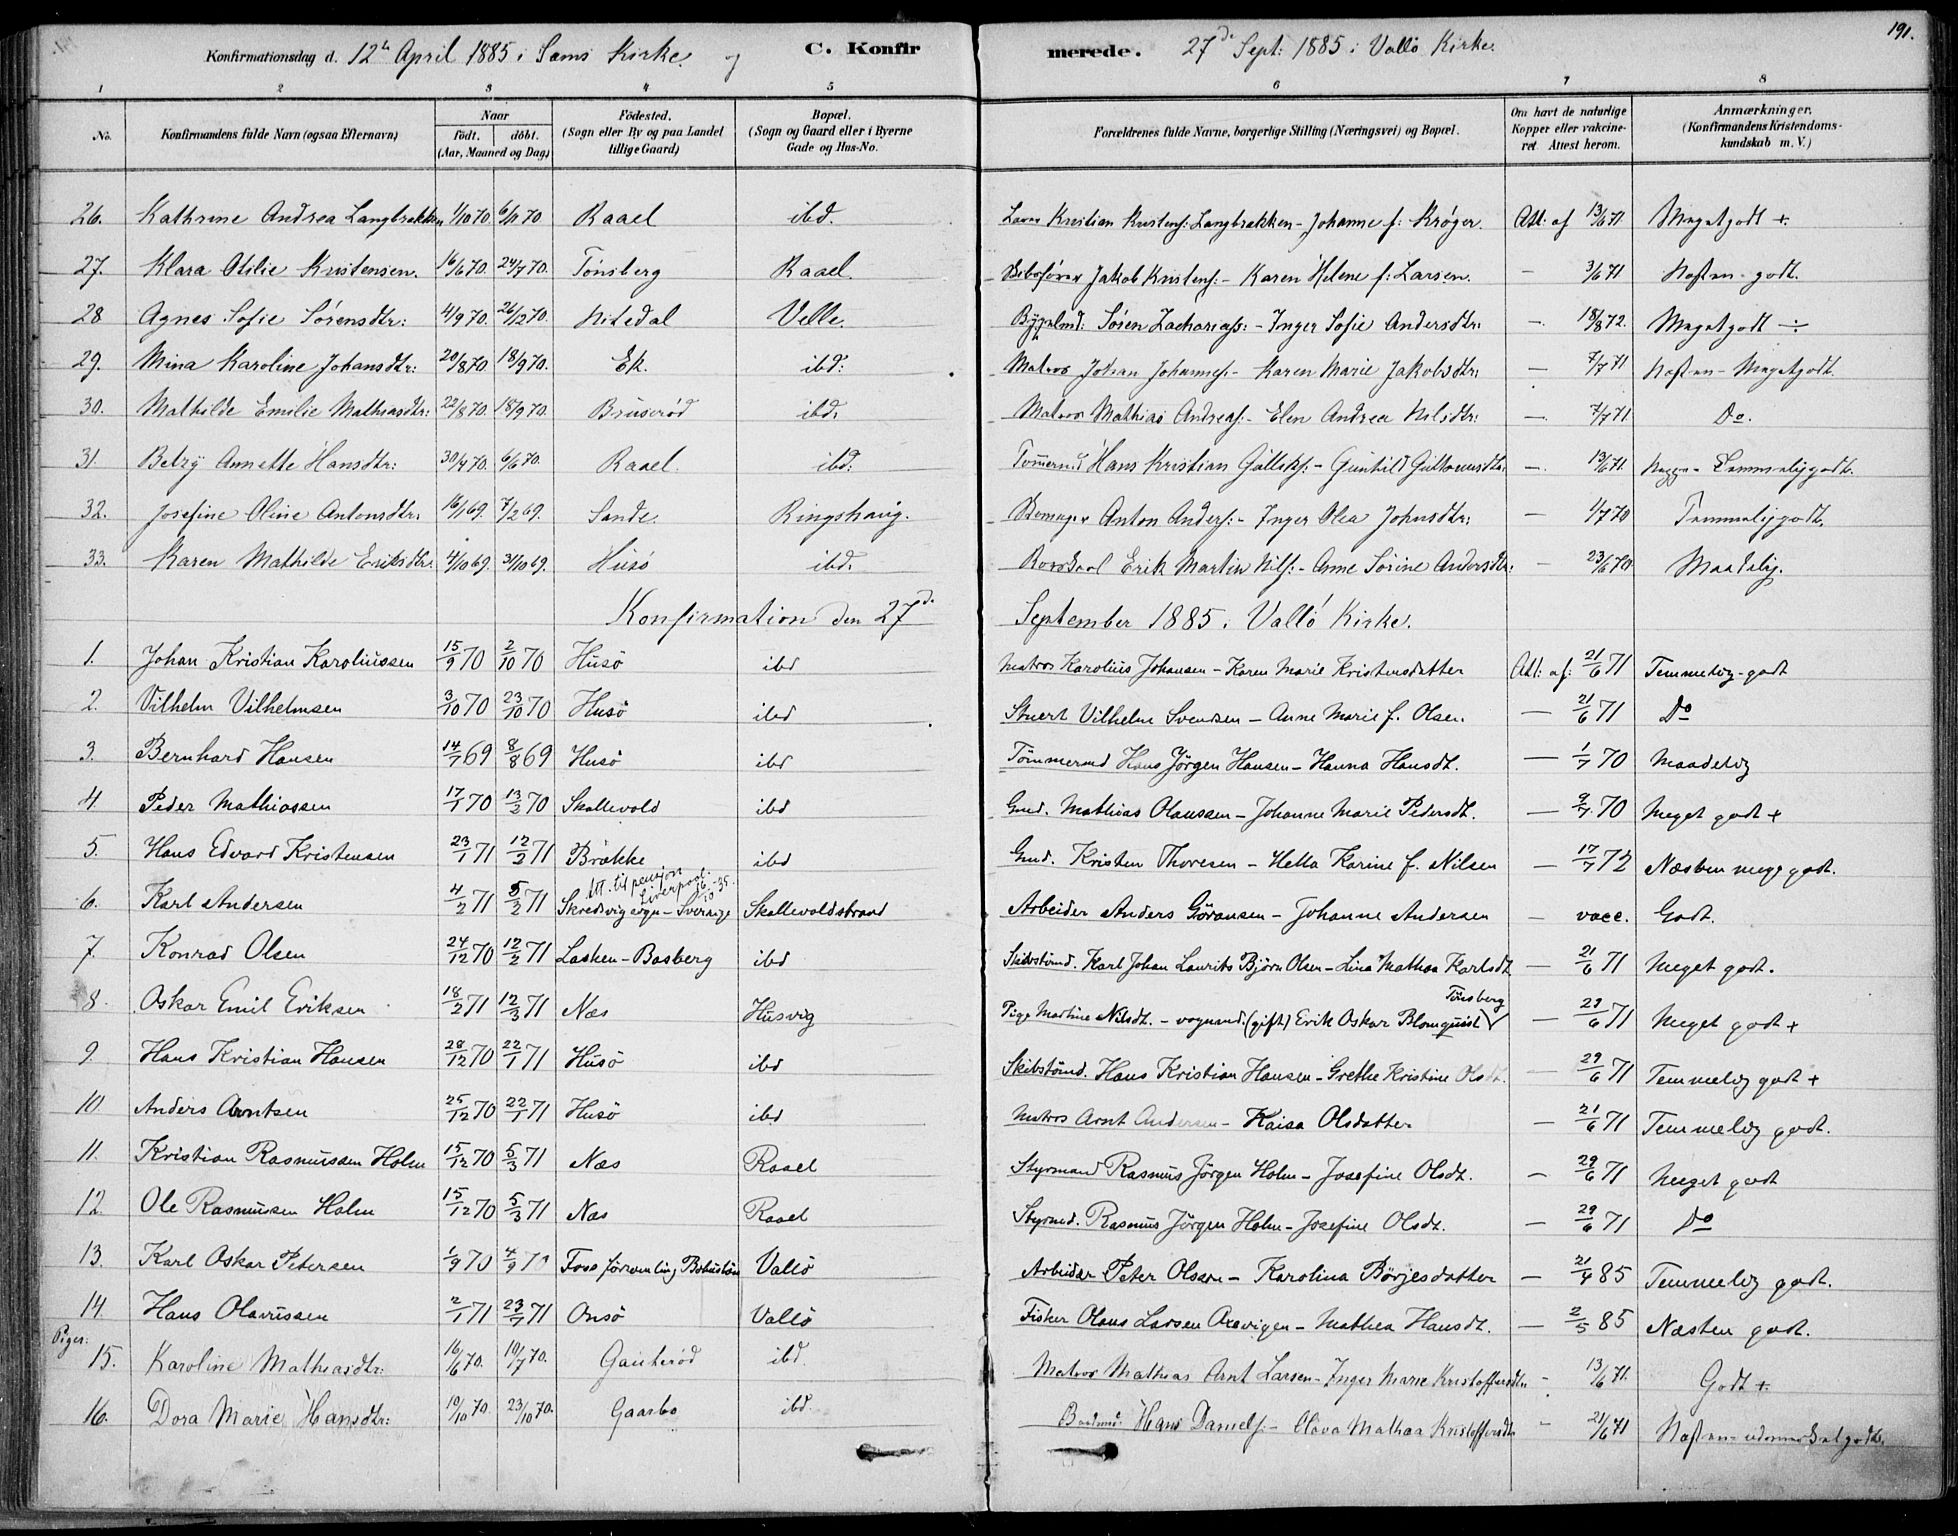 191.
Konfirmationsdag d. 12te April 1885 i Sems Kirke og C. Konfirmerede. 27de Sept: 1885 i Vallö Kirke.
1 2 3 4 5 6 7 8
No. Konfirmandens fulde Navn (ogsaa Efternavn) Naar födt. döbt. (Aar, Maaned og Dag) Födested. (Sogn eller By og paa Landet tillige Gaard) Bopæl. (Sogn og Gaard eller i Byerne Gade og Hus-No. Forældrenes fulde Navne, borgerlige Stilling (Næringsvei) og Bopæl. Om havt de naturlige Kopper eller vakcineret. Attest herom. Anmærkninger. (Konfirmandens Kristendomskundskab m. V.)
26. Kathrine Andrea Langbrækken 1/10 70 6/11 70 Raael ibd. Kristian Kristens: Langbrækken - Johanne f: Krøger. Att: af 13/6 71 Megetgodt +
27. Klara Otilie Kristensen. 16/6 70. 24/7 70. Tönsberg Raael. Jakob Kristens: - Karen Helene f: Larsen. - 3/6 71 Næsten - godt.
28 Agnes Sofie Sörensdtr: 4/9 70. 26/12 70. Nitedal Velle. Bygselmd: Sören Zacharias: - Inger Sofie Andersdtr: - 18/8 72. Megetgodt ÷
29. Mina Karoline Johansdtr: 20/8 70. 18/9 70. Ek. ibd: Matros Johan Johannes: - Karen Marie Jakobsdtr: - 7/7 71 Næsten - Megetgodt.
30. Mathilde Emilie Mathiasdtr: 22/8 70. 18/9 70. Bruserød ibd. Matros Mathias Andreas: - Elen Andrea Nilsdtr: - 7/7 71 Do.
31. Betzy Annette Hansdtr: 30/4 70. 6/6 70. Raael. ibd: Tömermd Hans Kristian Gulliks: - Gunhild Guttormsdtr. - 13/6 71. Temmeliggodt.
32. Josefine Oline Antonsdtr: 16/1 69. 7/2 69. Sande. Ringshaug. Anton Anders: - Inger Olea Johnsdtr: - 1/7 70 Temmeliggodt.
33. Karen Mathilde Eriksdtr. 4/10 69. 31/10 69. Husö ibd. Erik Martin Nils: - Anne Sörine Andersdtr: - 23/6 70. Maadelig.
Konfirmation den 27de September 1885. Vallö Kirke.
1. Johan Kristian Karoliussen 15/9 70 2/10 70 Husö ibd Matros Karolius Johansen - Karen Marie Kristensdatter Att: af: 21/6 71 Temmelig-godt
2. Vilhelm Vilhelmsen 3/10 70 23/10 70 Husö ibd Stuert Vilhelm Svendsen - Anne Marie f. Olsen - 21/6 71 Do
3. Bernhard Hansen 14/7 69 8/8 69 Husö ibd Tömmermd Hans Jörgen Hansen - Hanna Hansdt. - 1/7 70 Maadelig
4. Peder Mathiassen 17/1 70 13/2 70 Skallevold ibd Gmd. Mathias Olaussen - Johanne Marie Pedersdt. - 9/7 70 Meget godt +
5. Hans Edvard Kristensen 23/1 71 12/2 71 Brække ibd Gmd. Kristen Thoresen - Hella Karine f. Nilsen - 17/7 72 Næsten meget godt.
6. Karl Andersen 4/2 71 5/2 71 Att. til pensjon Skredsvig sogn - Sverige Skallevoldstrand Arbeider Anders Göransen - Johanne Andersen - vacc. Godt.
7. Konrad Olsen 24/12 70 12/2 71 Lasken - Basberg ibd Skibstömd. Karl Johan Laurits Björn Olsen - Lina Mathea Karlsdt - 21/6 71 Meget godt.
8. Oskar Emil Eriksen 18/2 71 12/3 71 Næs Husvig Pige Martine Nilsdt. - vognmd. (gift) Erik Oskar Blomquist Tönsberg - 29/6 71 Meget godt +
9. Hans Kristian Hansen 28/12 70 22/1 71 Husö ibd Skibstömd. Hans Kristian Hansen - Grethe Kristine Olsdt. - 29/6 71 Temmelig godt +
10. Anders Arntsen 25/12 70 22/1 71 Husö ibd Matros Arnt Andersen - Kaisa Olsdatter - 21/6 71 Temmelig godt.
11. Kristian Rasmussen Holm 15/12 70 5/3 71 Næs Raael Styrmand Rasmus Jörgen Holm - Josefine Olsdt. - 29/6 71 Meget godt
12. Ole Rasmussen Holm 15/12 70 5/3 71 Næs Raael Styrmd. Rasmus Jörgen Holm - Josefine Olsdt. - 29/6 71 Do
13. Karl Oskar Petersen 1/9 70 4/9 70 Foss församling Bohuslän Vallö Arbeider Peter Olsson - Karolina Börjesdatter - 21/4 85 Temmelig godt.
14. Hans Olaussen 2/1 71 23/7 71 Onsö Vallö Fisker Olaus Larsen Oravigen - Mathea Hansdt. - 2/5 85 Næsten godt.
Piger:
15. Karoline Mathiasdtr: 16/6 70. 10/7 70. Gauterød ibd Matros Mathias Arnt Larsen - Inger Marie Kristoffersdtr - 13/6 71. Godt +
16. Dora Marie Hansdtr: 10/10 70. 23/10 70. Gaarbo ibd. Hans Daniels: - Olava Mathea Kristoffersdtr - 21/6 71 Næsten - udmærketgodt.